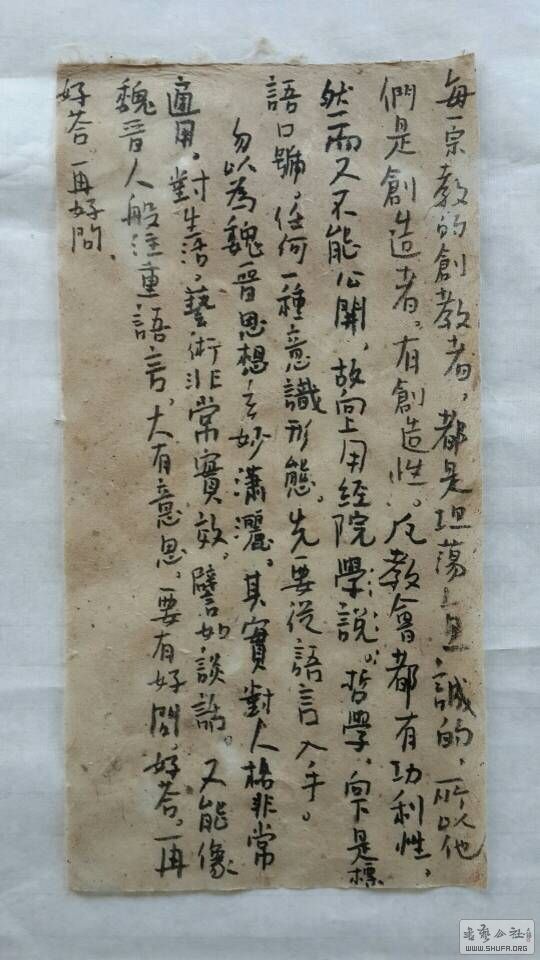 每一宗教的創教者，都是坦蕩坦誠的，所以他
們是創造者。有創造性。凡教會都有功利性，
然而又不能公開，故向上用經院學說。哲學，向下是標
語口號。任何一種意識形態。先要從語言入手。
勿以為魏晉思想玄妙瀟灑。其實對人格非常
適用。對生活，藝術非常實效。譬如談話。又能像
魏晉人般注重語言。大有意思。要有好問好答。再
好答再好問。
WWW.SHUFA.ORG